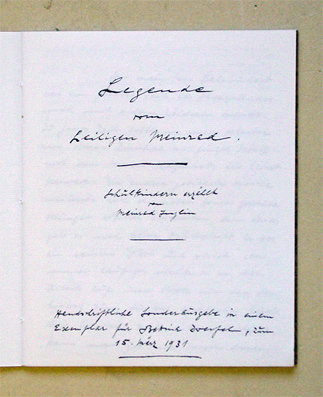 Legende
vom
heiligen Meinrad.
Schulkindern erzählt
von
Meinrad Inglin
Handschriftliche Sonderausgabe in einem
Exemplar für Bettina Zweifel, zum
15. März 1931